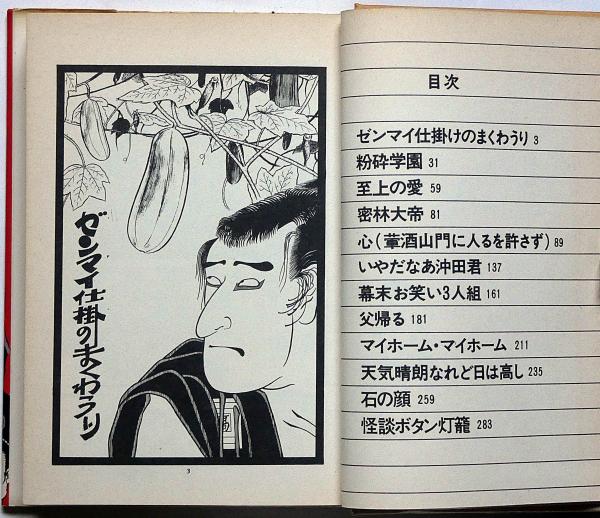 目次
ゼンマイ仕掛けのまくわうり 3
粉砕学園 31
至上の愛 59
密林大帝 81
心(葷酒山門に人るを許さず) 89
いやだなあ沖田君 137
幕末お笑い3人組 161
父帰る 181
マイホーム・マイホーム 211
天気晴朗なれど日は高し 235
石の顔 259
怪談ボタン灯籠 283
ゼンマイ仕掛のまくわうり
3